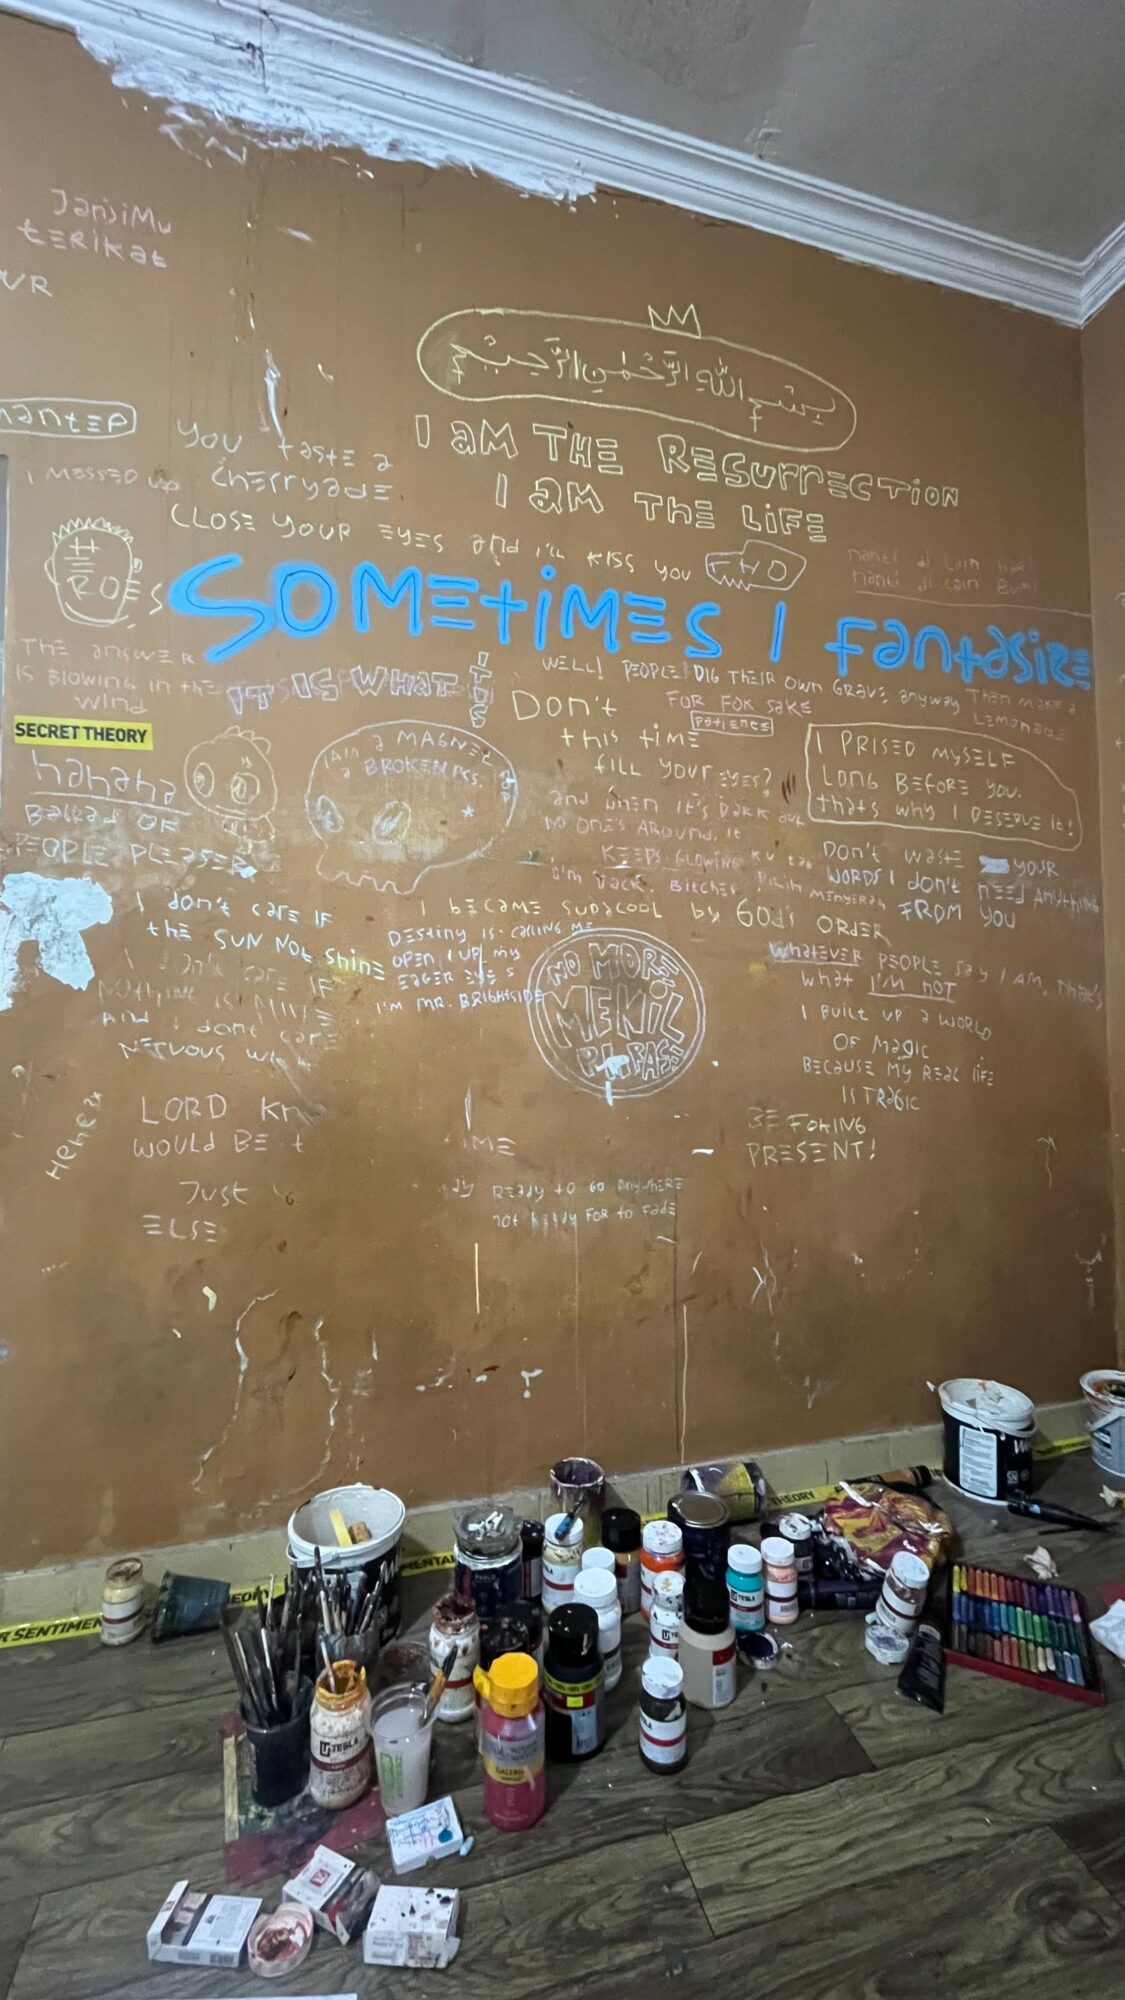 JanjiMu
tERiKat
بِسْمِ اللهِ الرَّحْمٰنِ الرَّحِيْمِ
I aM THE RESURRECTION
I aM thE LiFE
YOU tastE a
CHErryadE.
I MESSED up
CLOSE YOUR EYES and i'll KISS YOU
ROES
SOMEtiMEs I fantasize
nanti di Lain Hari
nanti di Lain Bumi
THE answER
IS BLOWING in thE
Wind
IT IS WHAT
ITIS
WELL! PEOPLE DIG THEIR OWN GRAVE anyway THEN MakE a
LEMonadE
Don't
FOR FOK SaKE
PatiEncE
this timE
fiLL YOUR EYES?
I PRISED MYSELF
LONG BEFORE YOU.
thats why I DESERVE it!
SECRET THEORY
hahaha
BaLLad OF
PEOPLE PLEASER
I AM a MAGNET
a BROKEN PCS.
and when it's Dark out
NO ONE'S AROUND, it
KEEPS GLOWING
I'm back, BitchEs
DON't WastE YOUR
WORDS I don't NEED ANYTHING
FROM YOU
I don't carE IF
thE SUN NOt ShinE
I don't carE IF
NOTHING IS MINE
AND I dont carE
NERVOUS
I bECAME SUPACOOL by GOd's ORDER
DEStiny is calling ME
OPEN UP MY
EAGER EYES
I'M MR. BRIGHtSIDE
NO MORE
MEKIL
PHRASE
WhatEVER PEOPLE Say I AM, that's
what I'M nOT
I BUILT UP a WORLD
OF MaGIC
BECAUSE MY REaL LIFE
IS TRaGIC
BE FOKING
PRESENT!
HEHE2x
LORD
WOULD BE
JUSt
ELSE
READY tO GO ANYWHERE
FOR to FadE
THEORY
SENTIMENTAL
TESLA
TESLA
TESLA
GALERIA